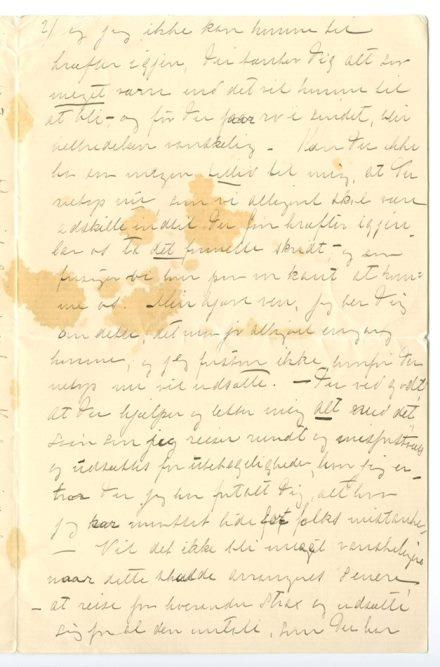 2/ og jeg ikke kan komme til
kræfter igjen, Du tænker Dig alt for
meget om med det vil komme til
at bli – og før Du faar ro i sindet, blir
helbredelsen vanskelig – Kan Du ikke
ha saa megen tillid til mig, at Du
netop nu, om vi alligevel skal være
adskille indtil Du faar kræfter igjen
lar os ta det formelle skridt, – og saa
vi paa en kant at kom-
me os. Min kjære ven, jeg ber Dig
om dette, det maa jo alligevel engang
komme, og jeg ikke, hvorfor Du
netop nu vil udsætte. – Du ved godt,
at Du hjælper og letter mig alt med det,
som jeg reiser rundt og
og udsættes for ubehageligheder, hvor jeg er –
tror Du jeg har fortalt Dig, alt hvor
jeg har maattet lide for folks mistanke,
– Vil det ikke bli meget vanskeligere
naar dette skulde arrangeres senere
– at reise fra hverandre strax og udsætte
sig for al den omtale, som Du har